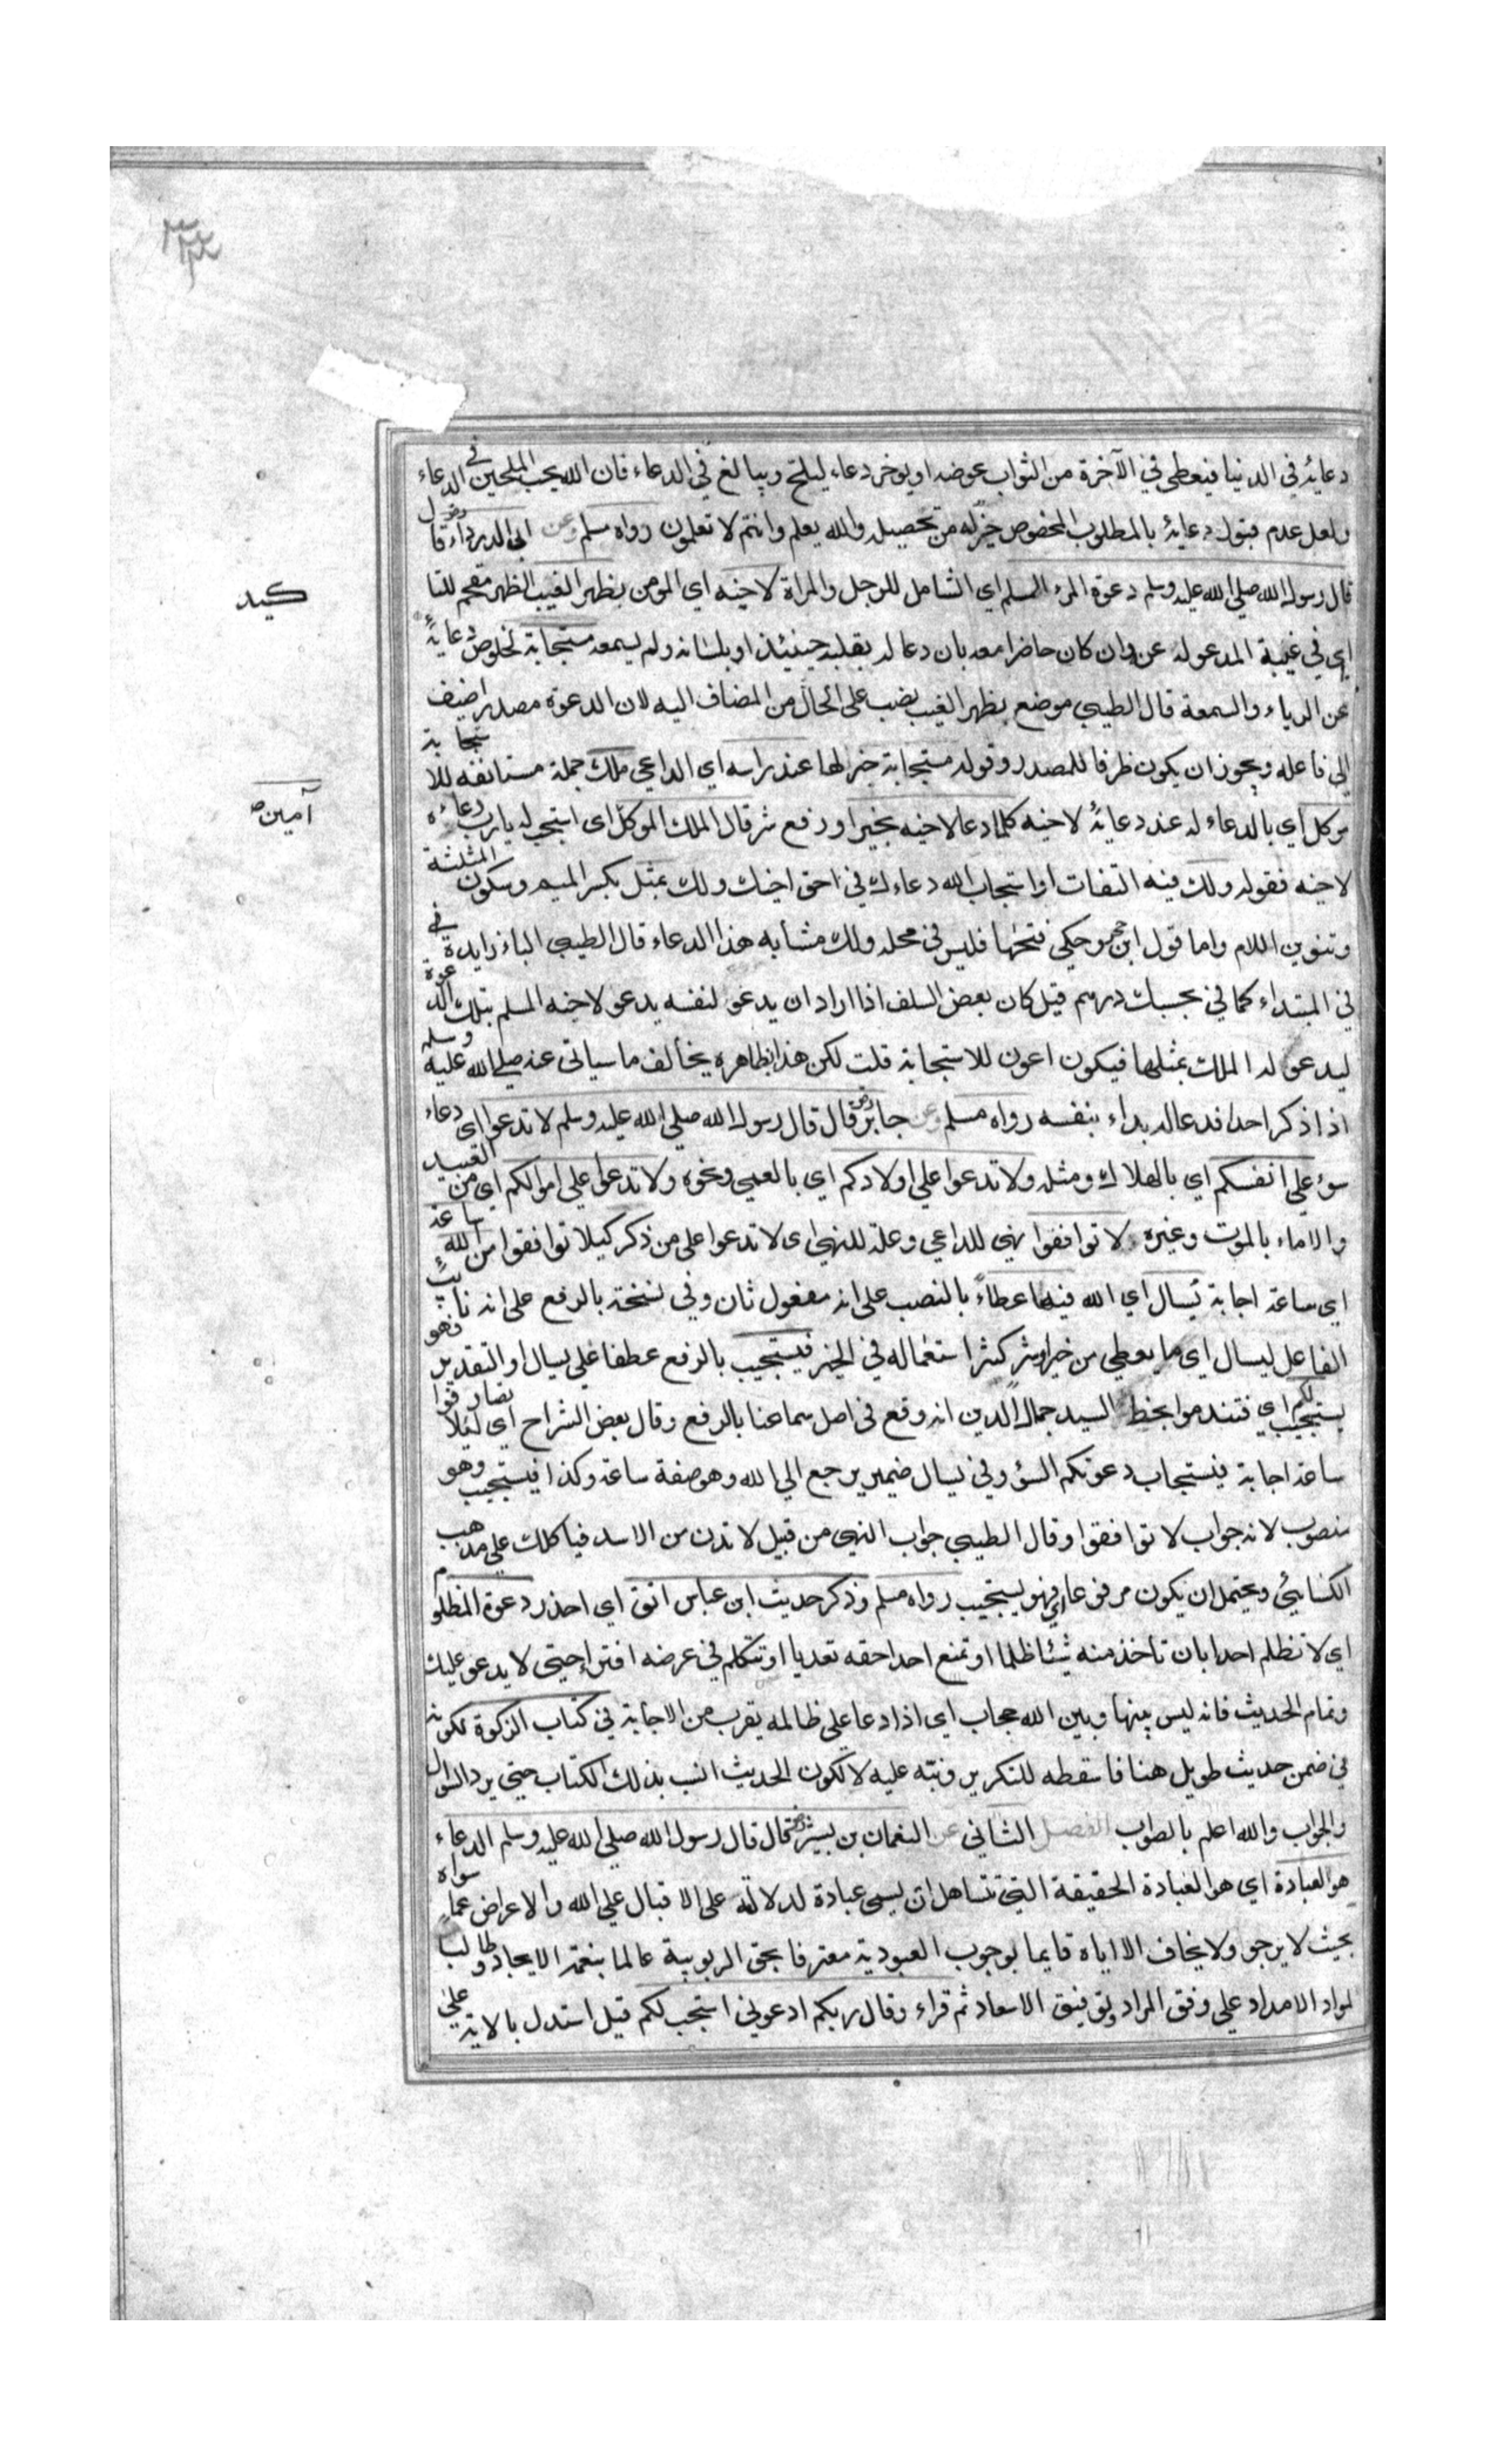 دعايه في الدنيا فيعطى في الآخرة من الثواب عوضه او يوخر دعاءه ليلح ويبالغ في الدعاء فان الله يحب الملحين في الدعاء
ولعل عدم قبول دعايه بالمطلوب المخصوص خير له من تحصيله والله يعلم وانتم لا تعلمون رواه مسلم وعن ابى الدرداء قا
قال رسول الله صلى الله عليه وسلم دعوة المرء المسلم اي الشامل للرجل والمراة لاخيه اي المومن بظهر الغيب الظهر مقحم للتا
كيد
اي في غيبة المدعو له عنه وان كان حاضرا معه بان دعا له بقلبه حينئذ او بلسانه ولم يسمعه مستجابة لخلوص دعايه
عن الرياء والسمعة قال الطيبي موضع بظهر الغيب نصب على الحال من المضاف اليه لان الدعوة مصدر اضيف
الى فاعله ويجوز ان يكون ظرفا للمصدر وقوله مستجابة خبر لها عند راسه اي الداعي ملك جملة مستانفة للا ستجابة
موكل اي بالدعاء له عند دعايه لاخيه كلما دعا لاخيه بخير او رفع شر قال الملك الموكل اى استجب له يا رب دعاءه
آمين
لاخيه فقوله ولك فيه التفات او استجاب الله دعاءك في احق اخيك ولك بمثل بكسر الميم وسكون المثلثة
وتنوين اللام واما قول ابن حجر وحكي فتحها فليس في محله ولك مشابه هذا الدعاء قال الطيبي الباء زايدة في
في المبتداء كما في بحسبك درهم قيل كان بعض السلف اذا اراد ان يدعو لنفسه يدعو لاخيه المسلم بتلك الدعوة
ليدعو له الملك بمثلها فيكون اعون للاستجابة قلت لكن هذا بظاهره يخالف ما سياتى عنه صلى الله عليه وسلم
اذا ذكر احدا فدعا له بداء بنفسه رواه مسلم وعن جابر قال قال رسول الله صلى الله عليه وسلم لا تدعوا اى دعاء
سوء على انفسكم اي بالهلاك ومثله ولا تدعوا علي اولادكم اي بالعمى ونحوه ولا تدعوا علي اموالكم اي من العبيد
والاماء بالموت وغيره لا توافقوا نهي للداعي وعلة للنهي اى لا تدعوا على من ذكر كيلا توافقوا من الله ساعة
اي ساعة اجابة يسال اي الله فيها عطاءً بالنصب على انه مفعول ثان وفي نسخة بالرفع على انه نايب
الفاعل ليسال اي ما يعطى من خير او شر كثر استعماله في الخير فيستجيب بالرفع عطفا علي يسال او التقدير فهو
يستجيب لكم اي فتندموا بخط السيد جمال الدين انه وقع في اصل سماعنا بالرفع وقال بعض الشراح اي لئلا تصادفوا
ساعة اجابة فيستجاب دعوتكم السوء وفي يسال ضمير يرجع الى الله وهو صفة ساعة وكذا فيستجيب وهو
منصوب لانه جواب لا توافقوا وقال الطيبي جواب النهى من قبيل لا تدن من الاسد فياكلك على مذهب
الكسائي ويحتمل ان يكون مرفوعا اي فهو يستجيب رواه مسلم وذكر حديث ابن عباس اتق اي احذر دعوة المظلوم
اي لا تظلم احدا بان تاخذ منه شيئا ظلما او تمنع احدا حقه تعديا او تتكلم في عرضه افتراء حتى لا يدعو عليك
وتمام الحديث فانه ليس بينها وبين الله حجاب اي اذا دعا على ظالمه يقرب من الاجابة في كتاب الزكوة لكونه
في ضمن حديث طويل هنا فاسقطه للتكرير ونبه عليه لا لكون الحديث انسب بذلك الكتاب حتى يرد السوال
والجواب والله اعلم بالصواب الفصل الثاني عن النعمان بن بشير قال قال رسول الله صلى الله عليه وسلم الدعاء
هو العبادة اي هو العبادة الحقيقة التي تتساهل ان يسمى عبادة لدلالته على الاقبال علي الله والاعراض عما سواه
بحيث لا يرجو ولا يخاف الا اياه قايما بوجوب العبودية معترفا بحق الربوبية عالما بنعمة الايجاد وطالبا
لمواد الامداد علي وفق المراد وتوفيق الاسعاد ثم قراء وقال ربكم ادعوني استجب لكم قيل استدل بالاية على